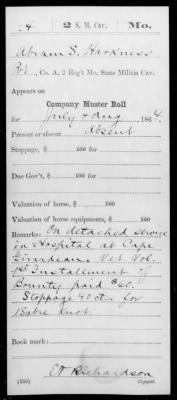 2 S. M. Cav. Mo.
Abram S. Harkness
Pvt, Co. A, 2 Reg't Mo. State Militia Cav.
Appears on
Company Muster Roll
for July & Aug, 1864.
Present or absent Absent
Stoppage, $ 100 for
Due Gov't, $ 100 for
Valuation of horse, $ 100
Valuation of horse equipments, $ 100
Remarks: On detached service
in Hospital at Cape
Girardeau. Vet Vol.
1st Installment of
Bounty paid $60.
Stoppage 40 cts for
1 Sabre Knot.
Book mark:
Richardson
(858) Copyist.